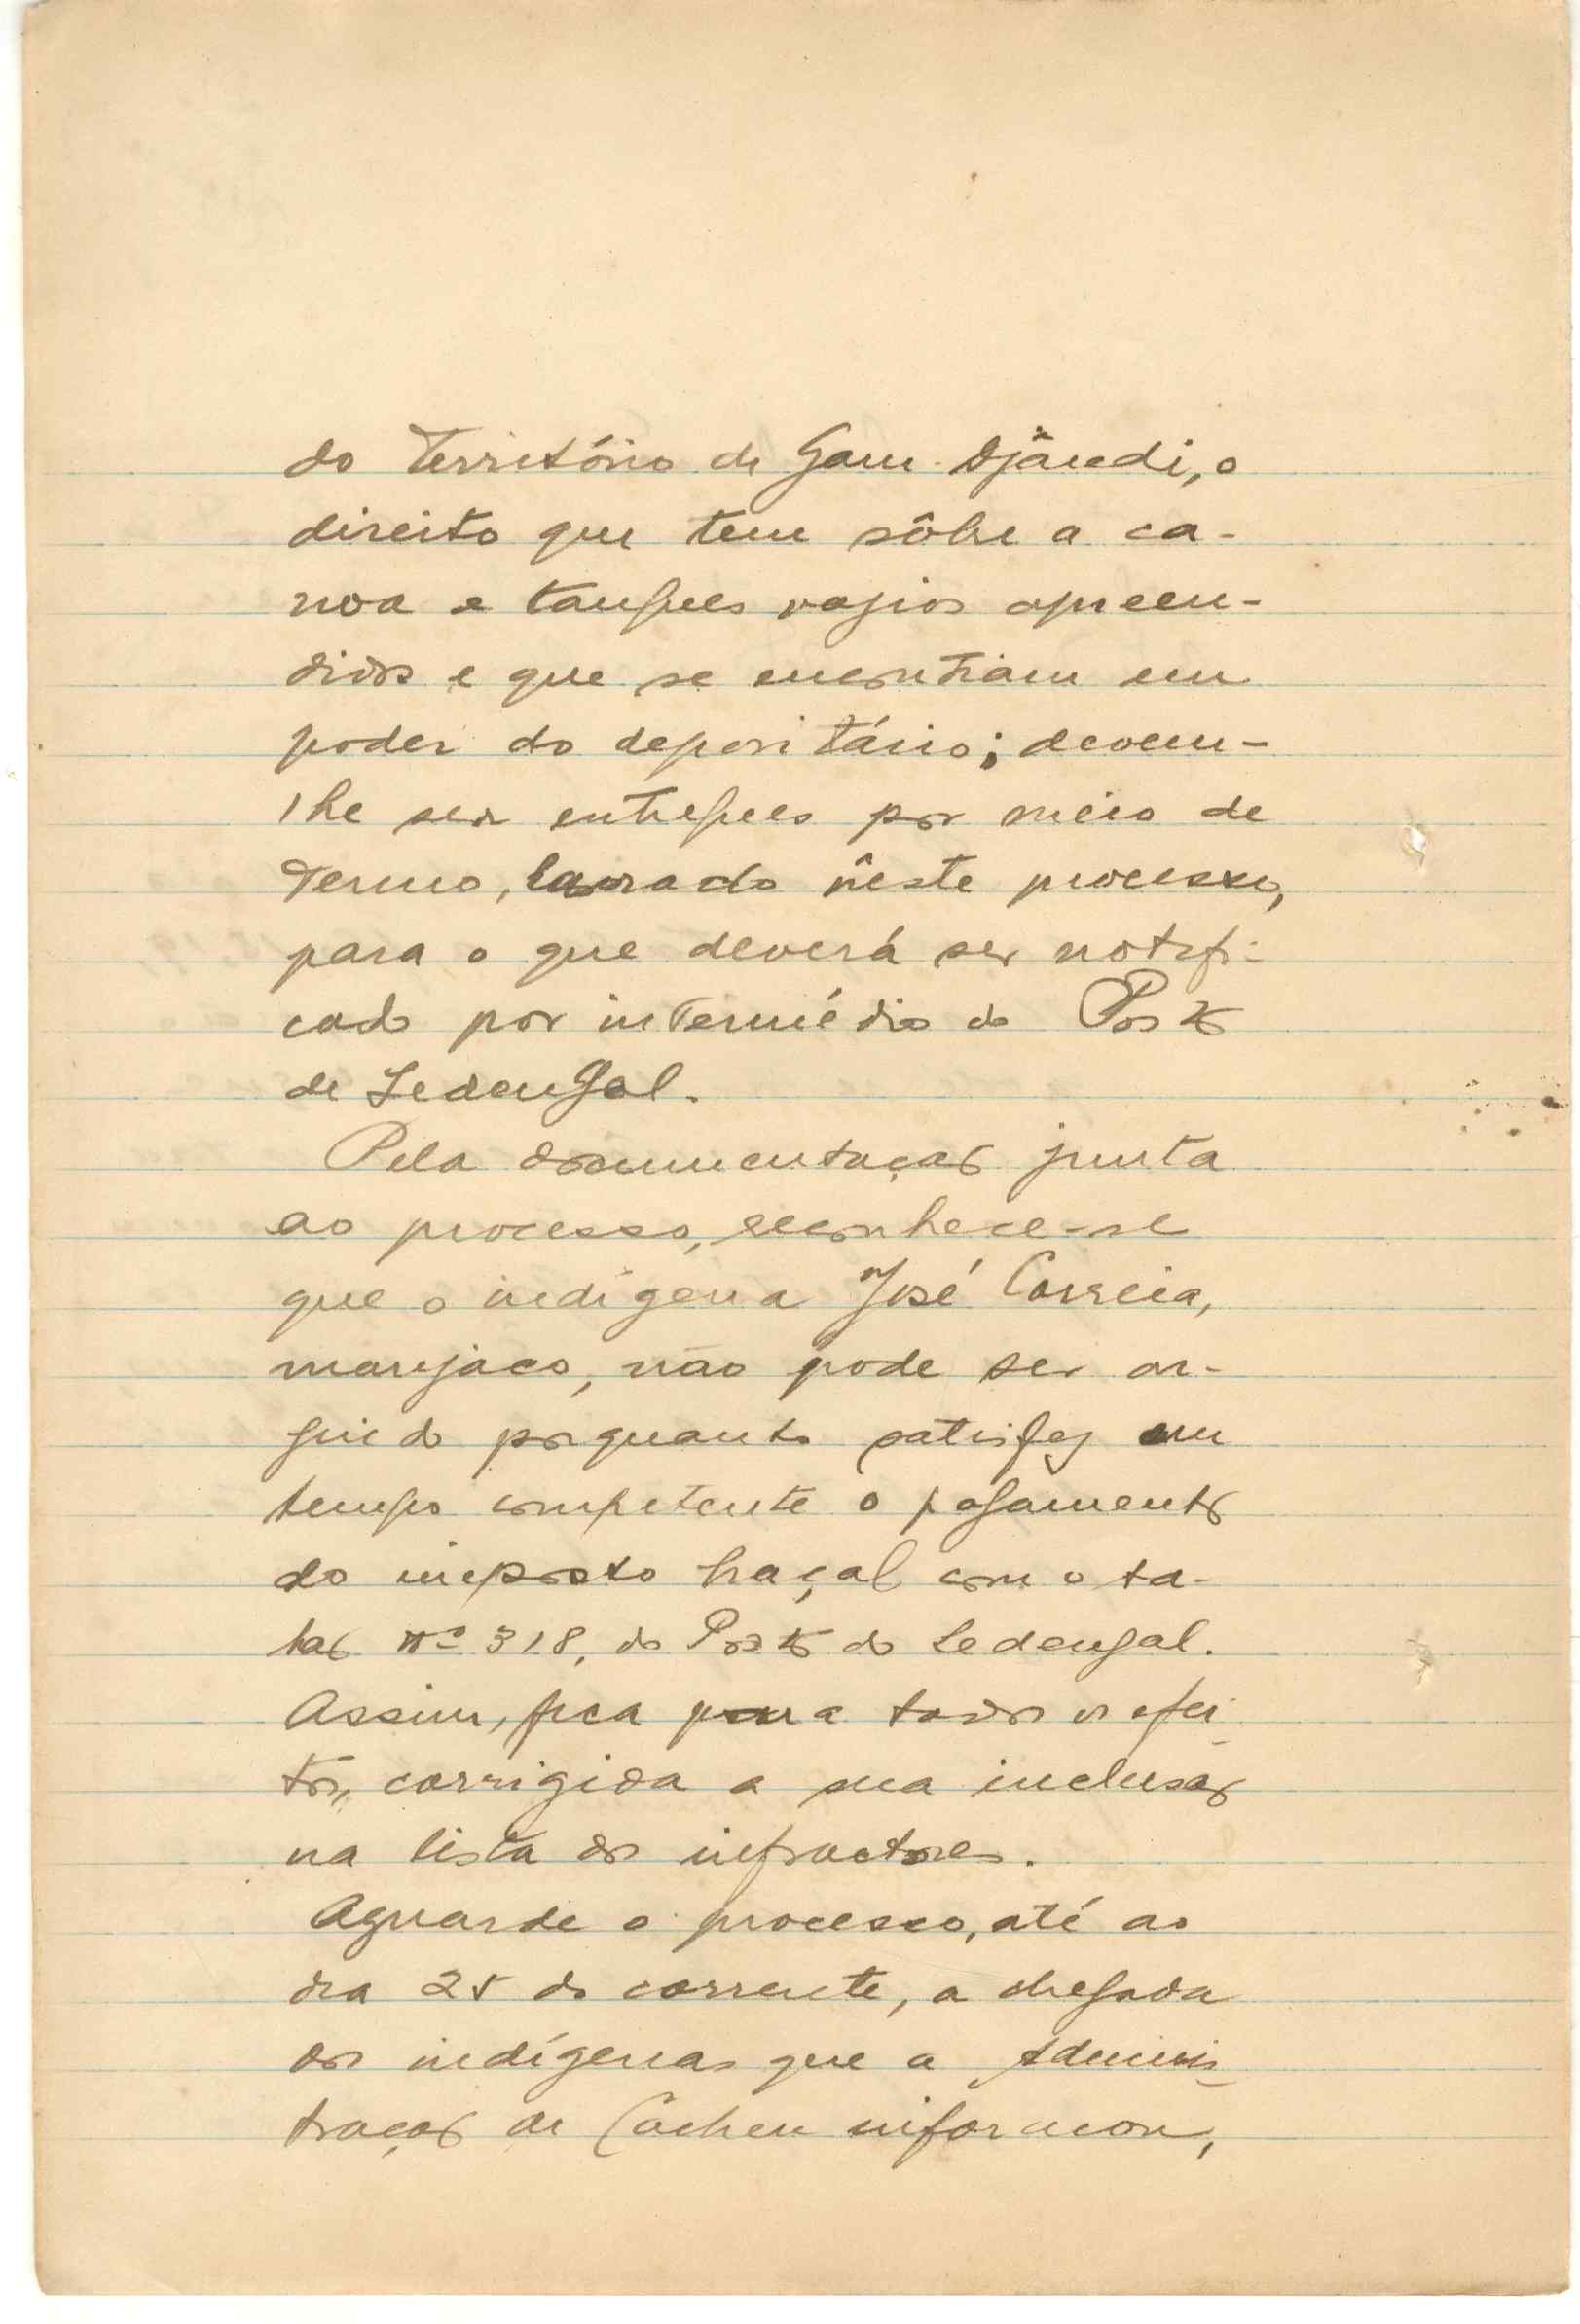 do Território de Gam-Djândi, o
direito que tem sôbre a ca-
noa e tanques vasios apreen-
didos e que se encontram em
poder do depositário; devem-
lhe ser entregues por meio de
termo, lavrado nêste processo,
para o que deverá ser notifi-
cado por intermédio do Posto
de Sedengal.
Pela documentação junta
ao processo, reconhece-se
que o indígena José Correia,
manjaco, não pode ser ar-
guido porquanto satisfez em
tempo competente o pagamento
do imposto braçal com o ta-
lão nº 318, do Posto do Sedengal.
Assim, fica para todos os efei-
tos, corrigida a sua inclusão
na lista dos infractores.
Aguarde o processo, até ao
dia 25 do corrente, a chegada
dos indígenas que a Adminis-
tração de Cacheu informou,